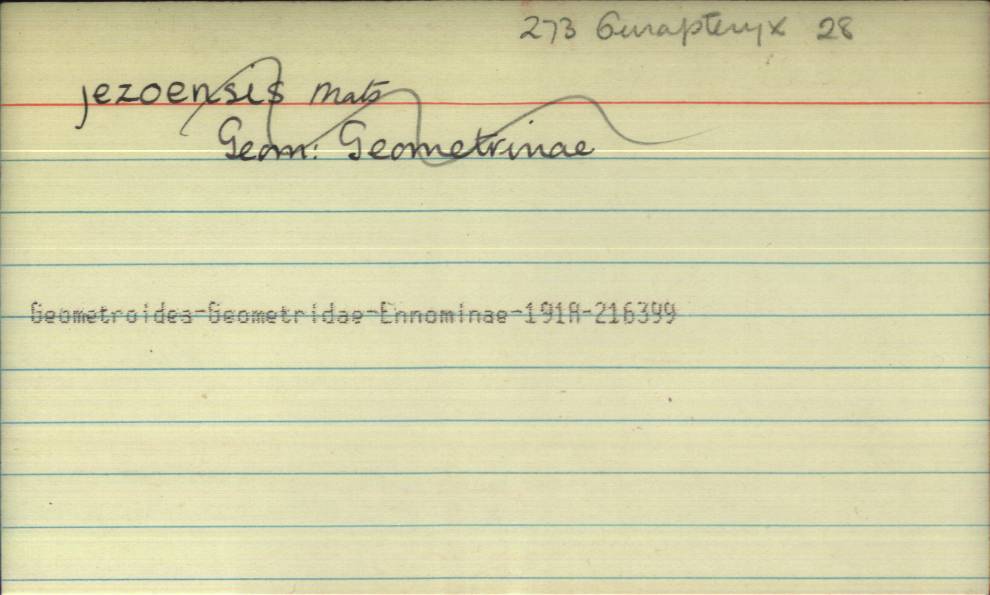 273 Ourapteryx 28
jezoensis Mats
Geom: Geometrinae
Geometroidea-Geometridae-Ennominae-191A-216399